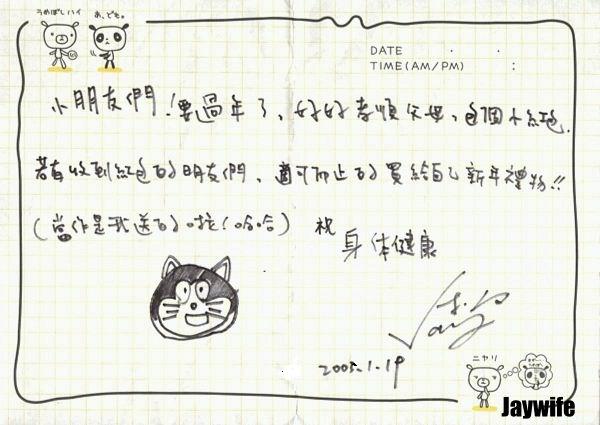 うめぼしハイ
あ、ども。
DATE . .
TIME(AM/PM) :
小朋友們!要過年了、好好孝順父母、包個小紅包.
若有收到紅包的朋友們、適可而止的買給自己新年禮物!!
(當作是我送的啦!哈哈) 祝
身体健康
Jay
2005.1.19
ニヤリ
Jaywife